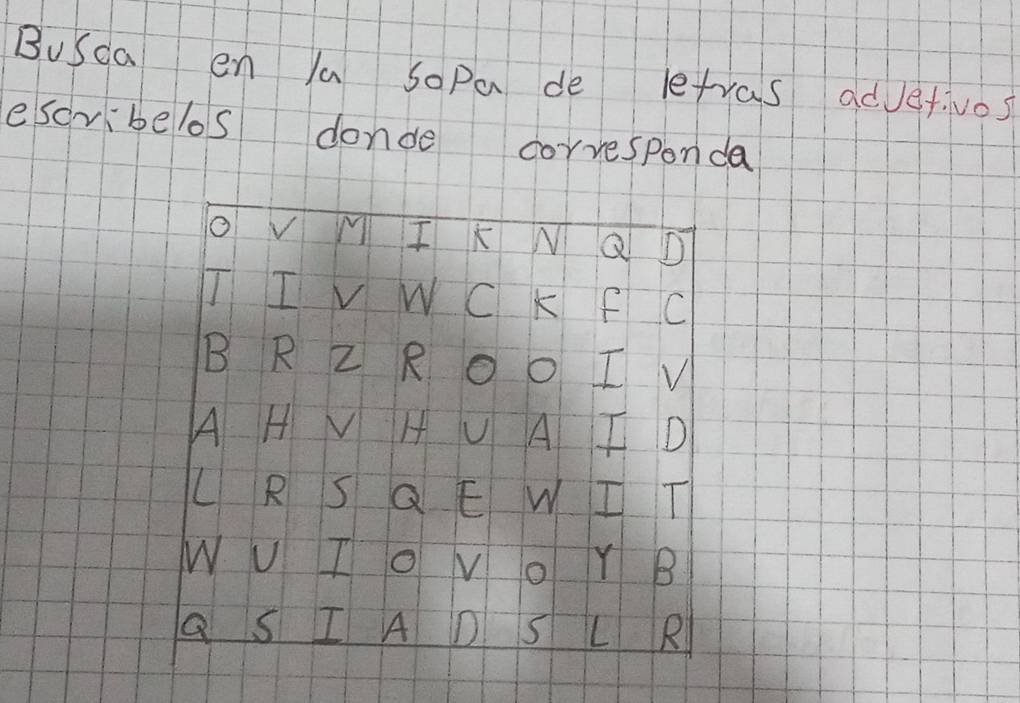 Busca en la sopa de letras adjetivos
escribelos donde corresponda
O V M I K N Q D
T I V W C K F C
B R Z R O O I V
A H V H U A I D
L R S Q E W I T
W U I O V O Y B
Q S I A D S L R